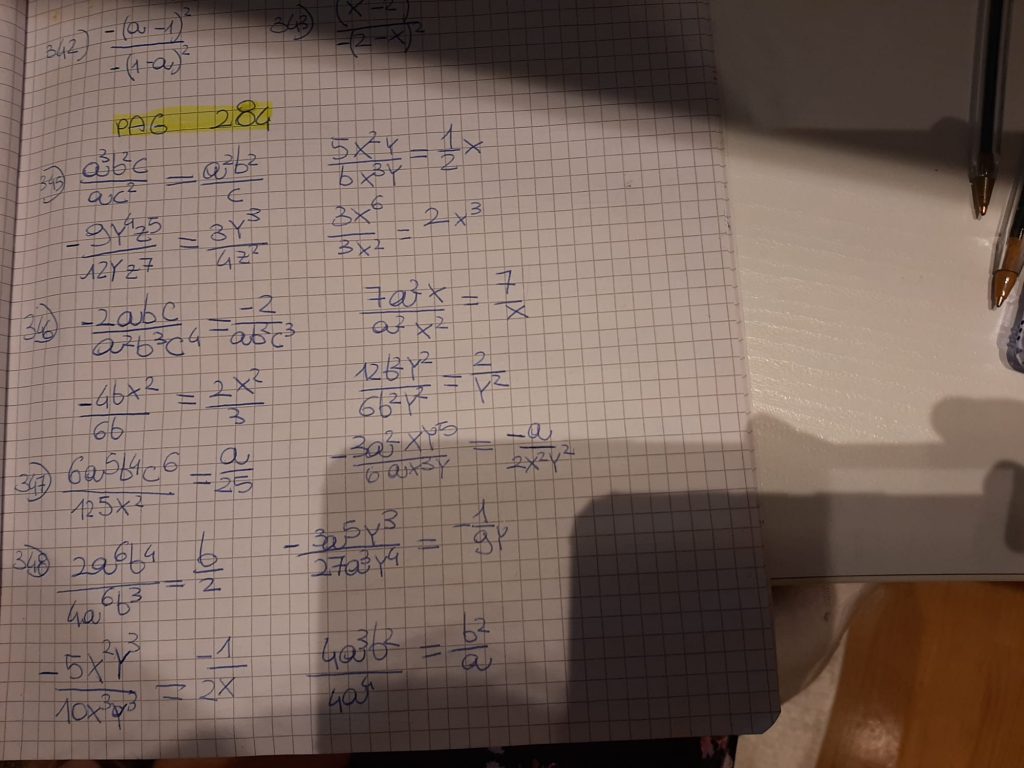 342) -(a-1)² / -(1-a)² 343) (x-2) / -(2-x)²
PAG 284
345) a³b²c / ac² = a²b² / c 5x²y / 6x³y = 1/2 x
- 9y⁴z⁵ / 12yz⁷ = 3y³ / 4z² 3x⁶ / 3x² = 2x³
346) -2abc / a²b³c⁴ = -2 / ab²c³ 7a²x / a²x² = 7 / x
-4bx² / 6b = 2x² / 3 12b²y² / 6b²y² = 2 / y²
347) 6a⁵b⁴c⁶ / 125x² = a / 25 - 3a²xy⁵ / 6ax³y = -a / 2x²y²
348) 2a⁶b⁴ / 4a⁶b³ = b / 2 - 3a⁵y³ / 27a³y⁴ = - 1 / 9y
- 5x²y³ / 10x³y³ = -1 / 2x 4a³b² / 4a⁴ = b² / a